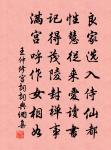 良家選入侍仙都
性慧從來愛讀書
記得茂陵封禪事
滿宮呼作女相如
王仲修宮詞詞典網集